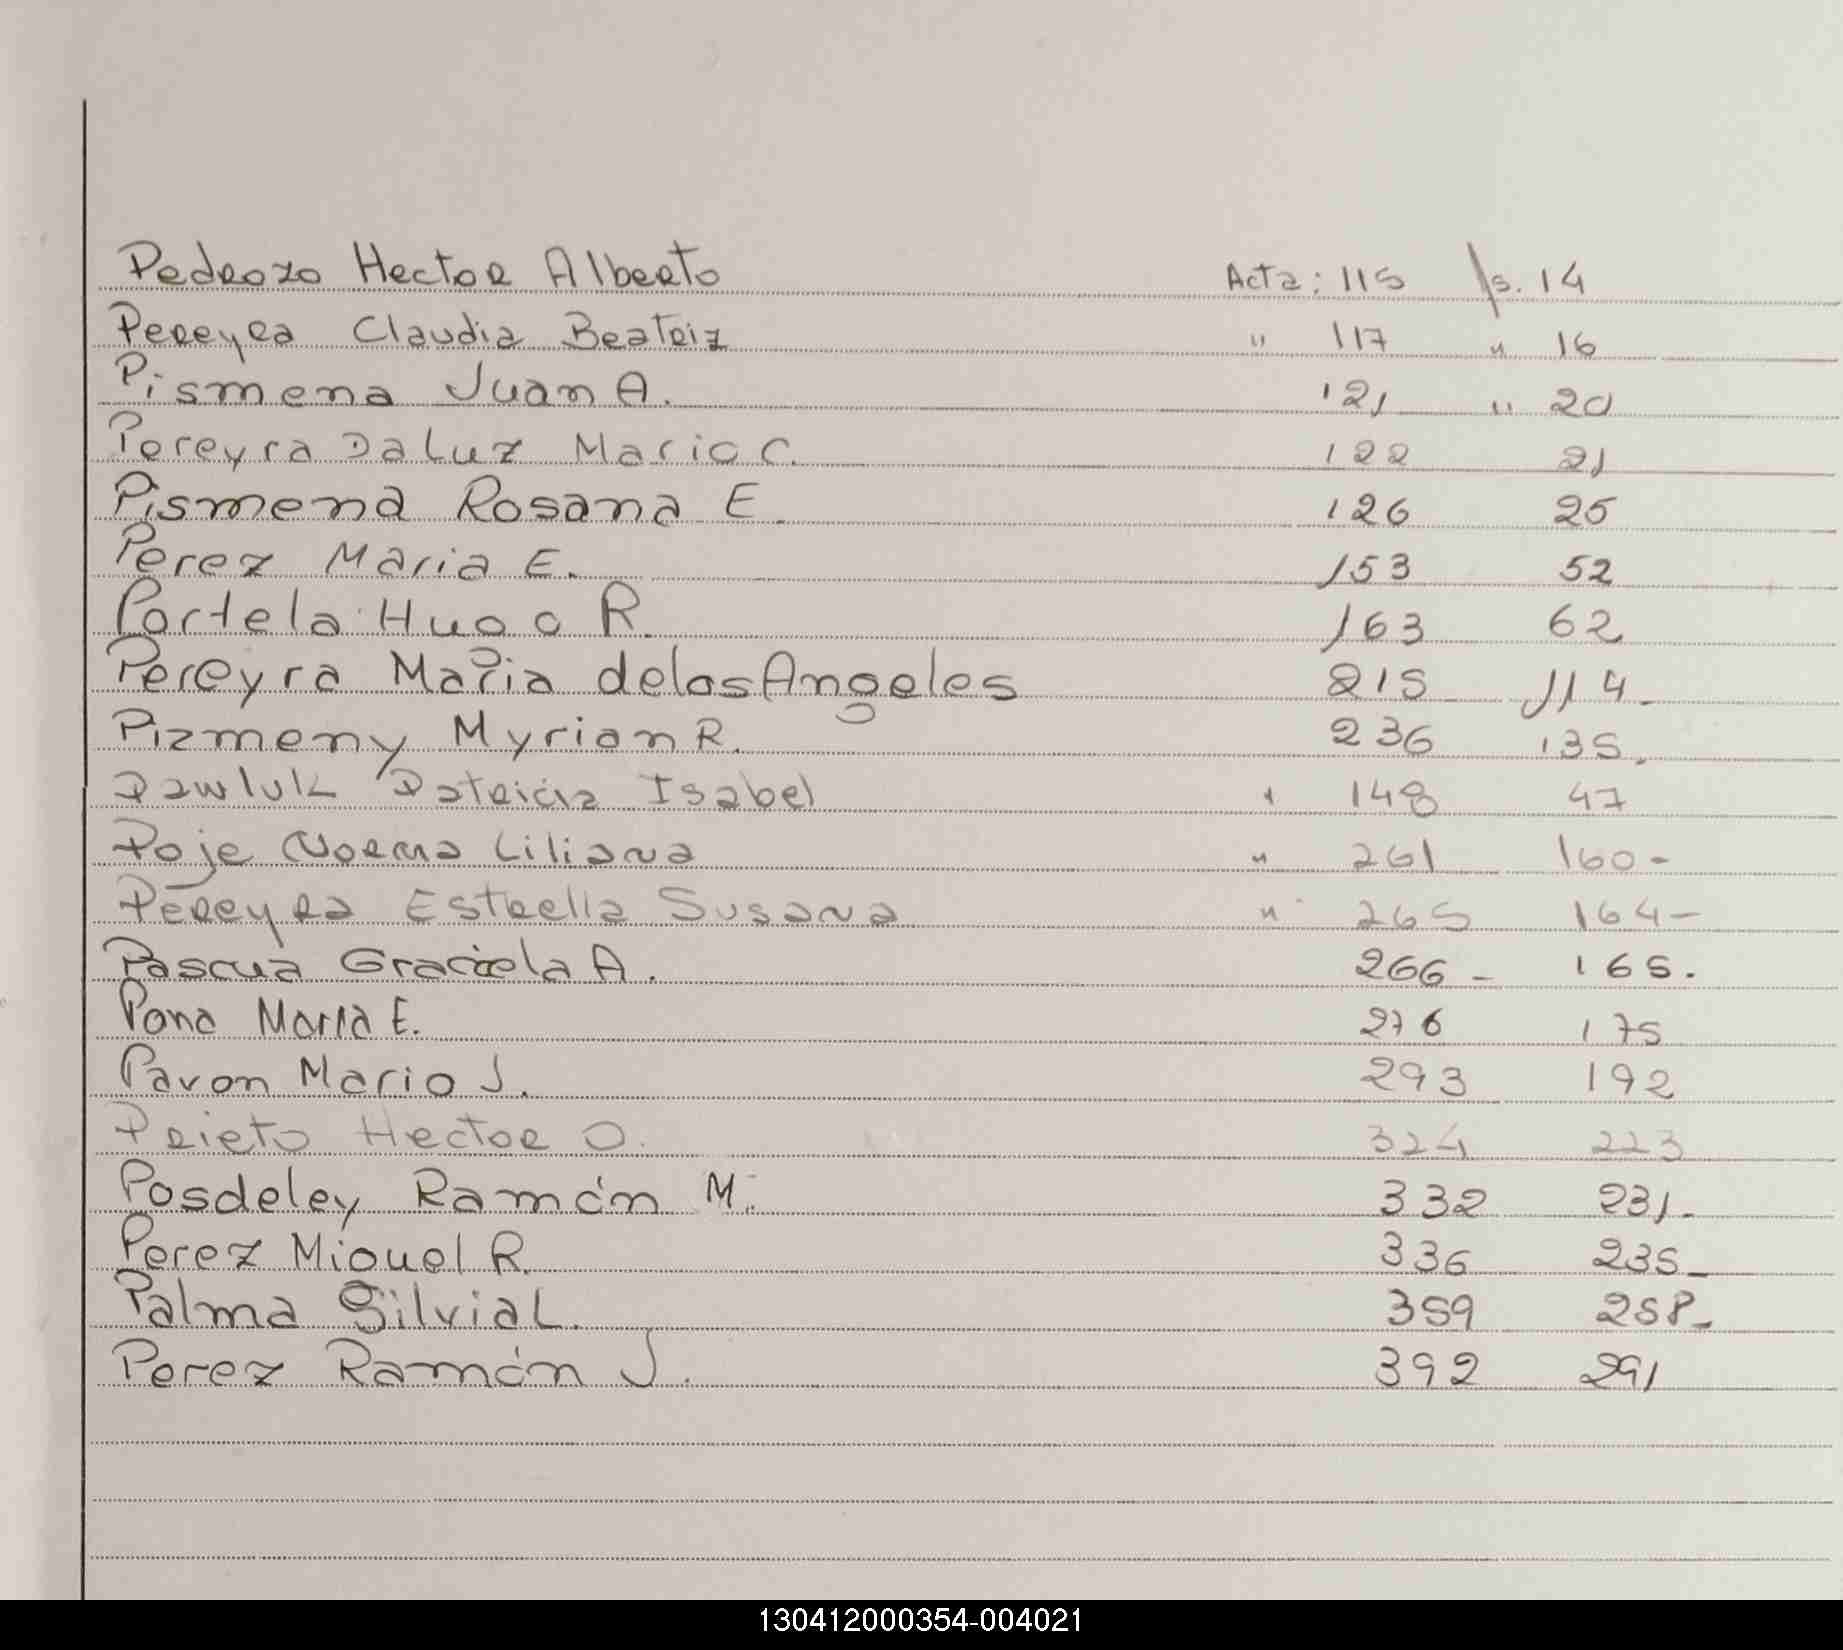 Pedrozo Hector Alberto Acta: 115 fs. 14
Pereyra Claudia Beatriz " 117 " 16
Pismena Juan A. 121 " 20
Pereyra Da Luz Mario C. 122 21
Pismena Rosana E. 126 25
Perez Maria E. 153 52
Portela Hugo R. 163 62
Pereyra Maria de los Angeles 215 114
Pizmeny Myrian R. 236 135.
Pawluk Patricia Isabel " 148 47
Poje Norma Liliana " 261 160-
Pereyra Estrella Susana " 265 164-
Pascua Graciela A. 266- 165.
Pona Maria E. 276 175
Pavon Mario J. 293 192
Prieto Hector O. 324 223
Posdeley Ramón M. 332 231-
Perez Miguel R. 336 235-
Palma Silvia L. 359 258-
Perez Ramón J. 392 291
130412000354-004021